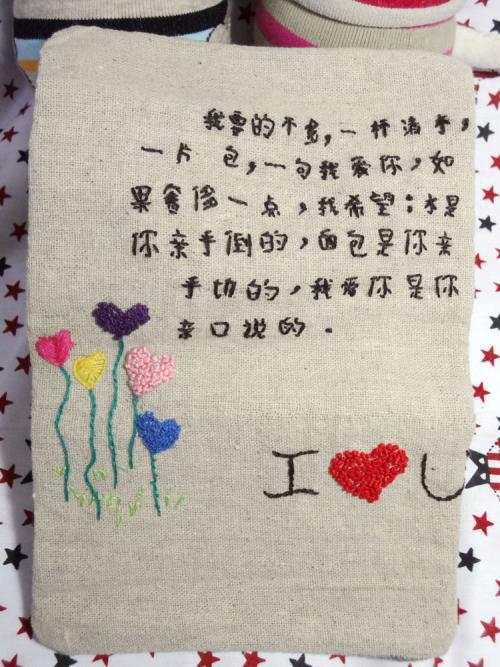 我要的不多,一杯清水,
一片 包,一句我爱你,如
果奢侈一点,我希望:水是
你亲手倒的,面包是你亲
手切的,我爱你是你
亲口说的.
I U